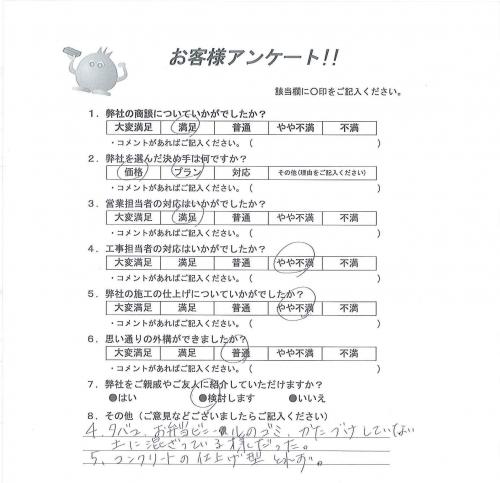 お客様アンケート!!
該当欄に〇印をご記入ください。
1．弊社の商談についていかがでしたか？
大変満足 満足 普通 やや不満 不満
・コメントがあればご記入ください。（ ）
2．弊社を選んだ決め手は何ですか？
価格 プラン 対応 その他(理由をご記入ください)
3．営業担当者の対応はいかがでしたか？
大変満足 満足 普通 やや不満 不満
・コメントがあればご記入ください。（ ）
4．工事担当者の対応はいかがでしたか？
大変満足 満足 普通 やや不満 不満
・コメントがあればご記入ください。（ ）
5．弊社の施工の仕上げについていかがでしたか？
大変満足 満足 普通 やや不満 不満
・コメントがあればご記入ください。（ ）
6．思い通りの外構ができましたか？
大変満足 満足 普通 やや不満 不満
・コメントがあればご記入ください。（ ）
7．弊社をご親戚やご友人に紹介していただけますか？
●はい ●検討します ●いいえ
8．その他（ご意見などございましたらご記入ください）
4、タバコ、お弁当ビニールのゴミ、かたづけしていない
土に混ざっている様だった。
5、コンクリートの仕上げ型 とれず。